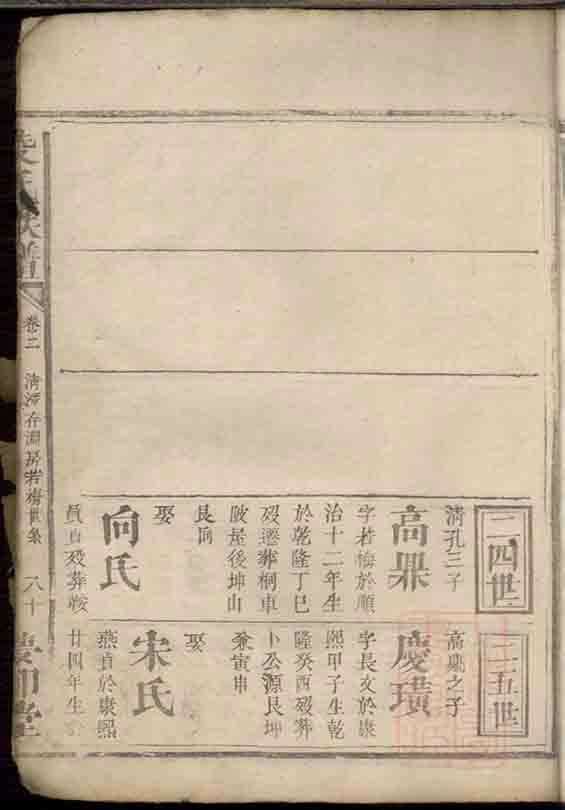 二四世
清孔三子
高鼎
字若梅於順
治十二年生
於乾隆丁巳
歿遷葬桐車
陂屋後坤山
艮向
娶
向氏
貞歿葬鞍
二五世
高鼎之子
慶璜
字長友於康
熙甲子生乾
隆癸酉歿葬
卜公源艮坤
兼寅申
娶
宋氏
燕貞於康熙
廿四年生
氏族譜
卷二
清孔存淵房若梅世系
八十
堂